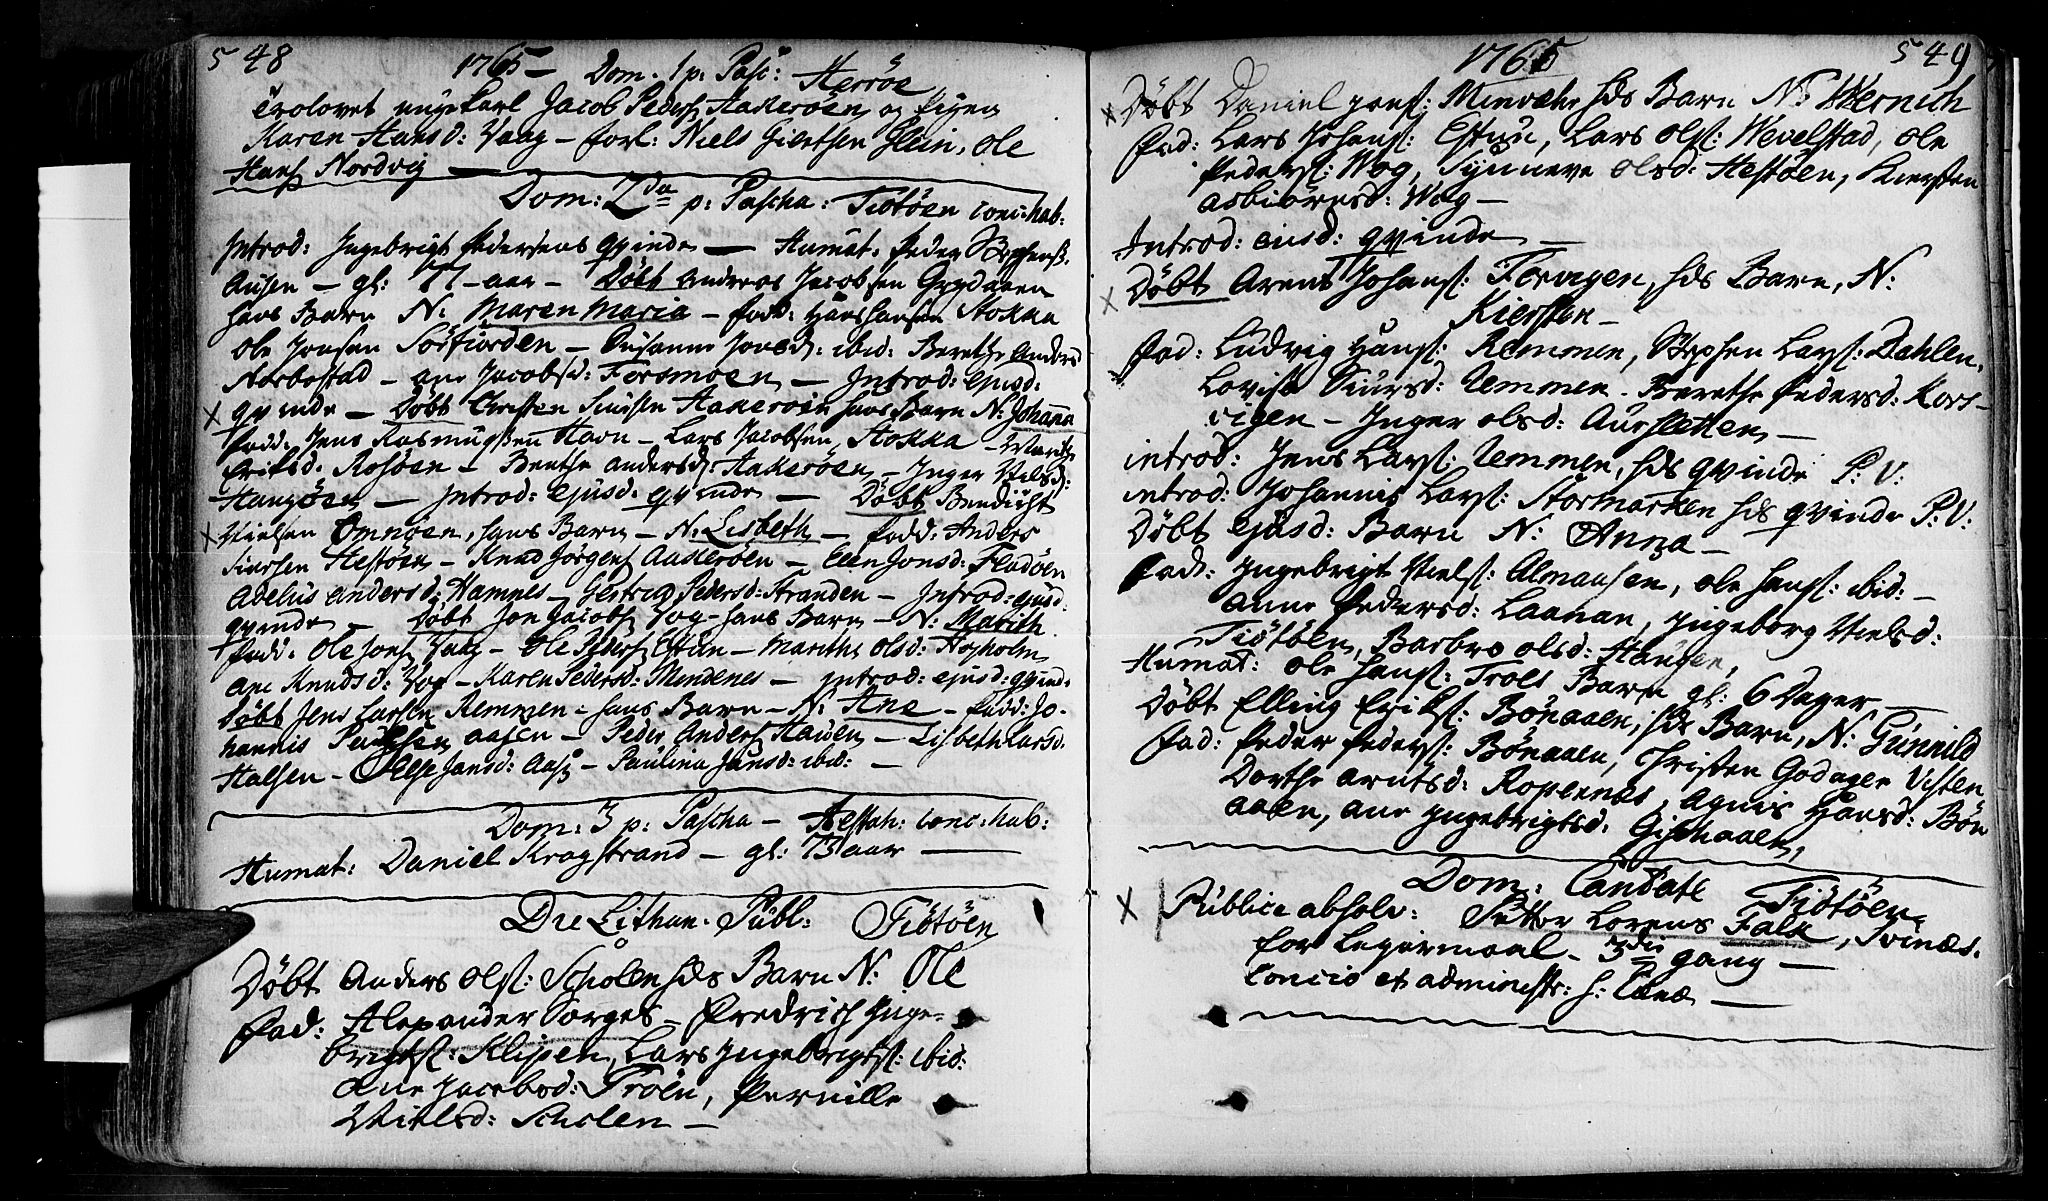 548
1765 — Dom. 1 p: Pasc: Herröe
Trolovet ungekarl Jacob Peders: Aakerøen og Pigen
Karen Hansd: Vaag — forl: Niels Giertsen Glein, Ole
Hans: Nordvig —
Dom: 2da p: Pascha: Tiøtøen conc: hab:
Introd: Ingebrigt Pedersens qvinde — Humat: Peder
Ausen — gl: 77 — aar — Døbt Andreas Jacobsen Grydaaen
hans Barn N: Maren Maria — fadd: Hans Hansen Stokka
Ole Jonsen Sørfiorden — Susanne Jonsd: ibid: Berethe Anders
Norbostad — ane Jacobsd: Forsmoen — Introd: ejusd:
x qvinde — Døbt Christen Siursen Aakerøen hans Barn N: Johanna
fadd: Jens Rasmussen Havn — Lars Jacobsen Stokka —
Eriksd. Rosøen — Berithe Andersd: Aakerøen — Inger Nielsd:
Haugøen — Introd: ejusd: qvinde — Døbt Bendicht
x Nielsen Omnøen, hans Barn — N: Lisbeth — fadd: Anders
Siursen Hestøen — Knud Jørgens: Aakerøen — Elen Jonsd: Flodøen
Adelus Andersd: Hamnes — Gertrud Pedersd: Stranden — Introd: ejusd:
qvinde — Døbt Jon Jacobs: Vog — hans Barn — N: Marith
fadd: Ole Jons: Vaag — Ole Peders: Estun — Marithe Olsd: Højholm
ane Knudsd: Vog — Karen Pedersd: Mindenes — introd: ejusd: qvinde
Døbt Jens Larsen Remmen — hans Barn — N: Ane — fadd: Jo-
hannis Poulsen aasen — Peder Anders: Hauen — Lisbeth Larsd.
Halsen — Else Jansd: Aas: — Paulina Jansd: ibid: —
Dom: 3 p: Pascha — Alstah: conc: hab:
Humat: Daniel Kragstrand — gl: 73 aar —
Die Lithan. Publ: Tiøtøen
Døbt Anders Ols: Scholen hds Barn N: Ole
Fad: Alexander Borges — Fredrich Inge-
brigts: Klippen, Lars Ingebrigts: ibid:
Ane Jacobsd: Trøen, Pernille
Nielsd: Scholen —
1765
549
x Døbt Daniel Jons: Minvæhr hds Barn N: Wernich
Fad: Lars Johans: Estun, Lars Ols: Wevelstad, Ole
Peders: Wog, Synneve Olsd: Hestøen, Kiersten
Asbiørnsd: Wog —
Introd: eiusd: qvinde —
x Døbt Arent Johans: Forvigen, hds Barn, N:
Kiersten —
Fad: Ludvig Hans: Remmen, Stephen Lars: Dahlen,
Lovisa Siursd: Remmen — Berethe Pedersd: Kors-
vigen — Inger Olsd: Aursletten —
introd: Jens Lars: Remmen, hds qvinde P: V:
introd: Johannis Lars: Stormarken hds qvinde P: V:
Døbt ejusd: Barn N: Anna —
Fad: Ingebrigt Niels: Almaasen, Ole Hans: ibid: —
Anne Pedersd: Laanan, Ingeborg Nielsd:
Tiøtøen, Barbro Olsd: Haugen,
Humat: Ole Hans: Troes Barn gl: 6 Dager —
Døbt Elling Eriks: Bønaaen, hds Barn, N: Gunnild
Fad: Peder Peders: Bønaaen, Christen Godager Visten
Dorthe Arntsd: Roperness, Agnis Hansd: Bøn
aaen, Ane Ingebrigtsd: Gishaaen,
Dom: Cantate Tiøtøen
x Publice absolv: Petter Lorens Falk, Svinæs.
for Legermaal — 3die gang —
Concio et administr: h: Canæ —